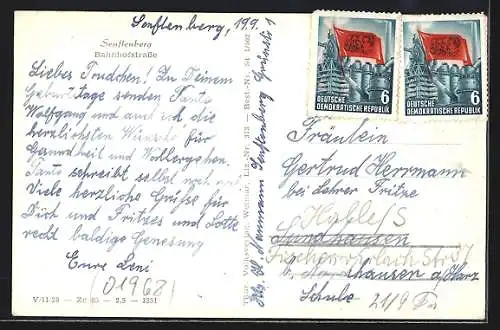 Senftenberg, 19.9.
Senftenberg
Bahnhofstraße
Liebes Trudchen! Zu Deinem
Geburtstage senden Tante
Wolfgang und auch ich die
herzlichsten Wünsche für
Gesundheit und Wohlergehen.
Tante schreibt selbst noch
Viele herzliche Grüße für
Dich und Fritzes und Lotte
recht baldige Genesung
Eure Leni
(01968)
V/11/28 - Zt
Senftenberg
DEUTSCHE
DEMOKRATISCHE REPUBLIK 6
DEUTSCHE
DEMOKRATISCHE REPUBLIK 6
Fräulein
Gertrud Herrmann
bei Lehrer Fritze
Halle/S
Sundhausen
hausen a/Harz
Schule 21/9